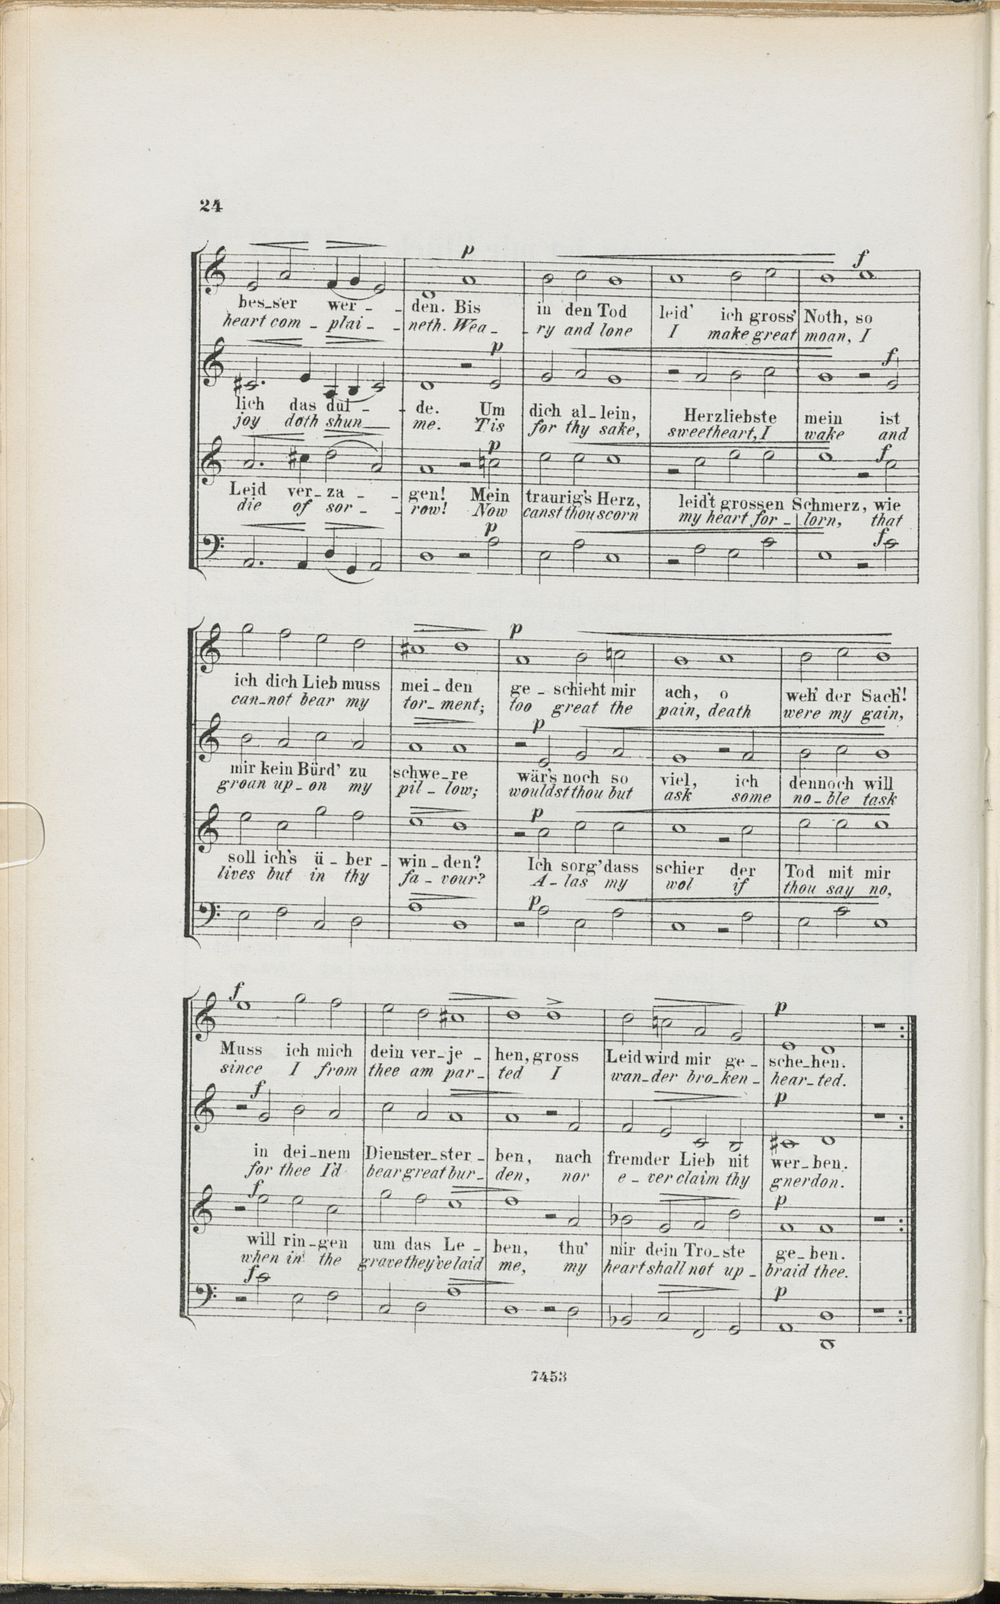 24
p f
bes_ser wer - - den. Bis in den Tod leid' ich gross' Noth, so
heart com - plai - - neth. Wea - - ry and lone I make great moan, I
p f
lich das dul - - de. Um dich al_lein, Herzliebste mein ist
joy doth shun me. 'Tis for thy sake, sweetheart, I wake and
p f
Leid ver_za - - gen! Mein traurig's Herz, leid't grossen Schmerz, wie
die of sor - - row! Now canst thou scorn my heart for - lorn, that
p f
p
ich dich Lieb muss mei_den ge - schieht mir ach, o weh' der Sach'!
can_not bear my tor_ment; too great the pain, death were my gain,
p
mir kein Bürd' zu schwe_re wär's noch so viel, ich dennoch will
groan up_on my pil_low; wouldst thou but ask some no_ble task
p
soll ich's ü - ber - win_den? Ich sorg' dass schier der Tod mit mir
lives but in thy fa_vour? A_las my wol if thou say no,
p
f p
Muss ich mich dein ver_je - hen, gross Leid wird mir ge - sche_hen.
since I from thee am par - ted I wan_der bro_ken - hear_ted.
f p
in dei_nem Dienst er_ster - ben, nach fremder Lieb nit wer_ben.
for thee I'd bear great bur - den, nor e - ver claim thy gnerdon.
f p
will rin_gen um das Le - ben, thu' mir dein Tro_ste ge_ben.
when in the grave they've laid me, my heart shall not up - braid thee.
f p
7453